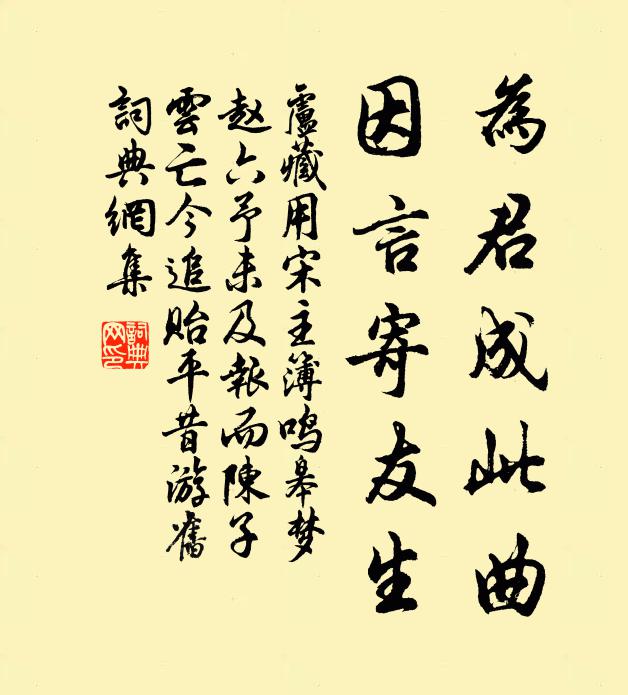 為君成此曲
因言寄友生
盧藏用宋主簿鳴皋梦
赵六予未及報而陳子
雲亡今追貽平昔游舊
詞典網集
詞典網印